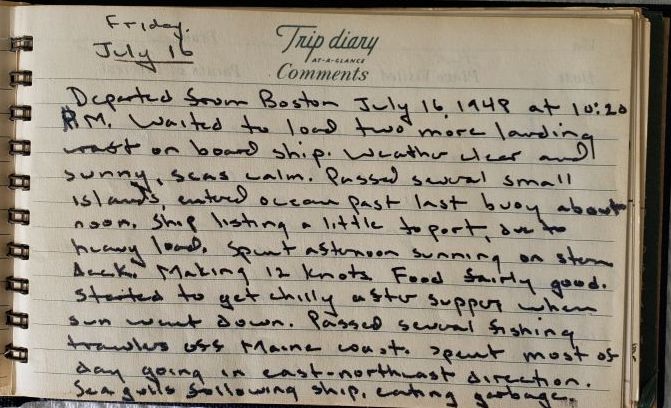 Friday.
July 16
Trip diary
AT-A-GLANCE
Comments
Departed from Boston July 16, 1948 at 10:20
A.M. Waited to load two more landing
craft on board ship. Weather clear and
sunny, seas calm. Passed several small
islands, entered ocean past last buoy about
noon. Ship listing a little to port, due to
heavy load. Spent afternoon sunning on stern
deck. Making 12 knots. Food fairly good.
Started to get chilly after supper when
sun went down. Passed several fishing
trawlers off Maine coast. Spent most of
day going in east-northeast direction.
Sea gulls following ship, eating garbage.